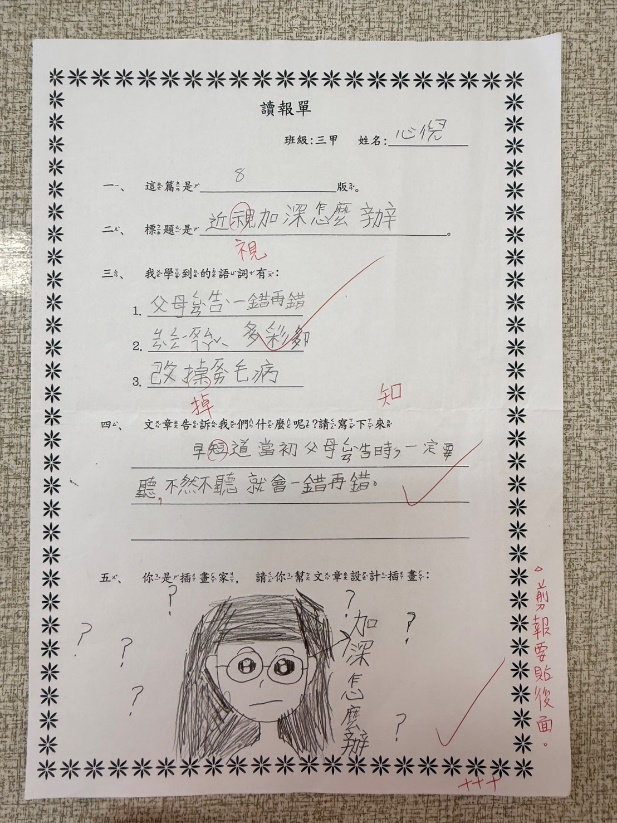 讀報單
班級:三甲 姓名:心倪
一、 這篇是 8 版。
二、 標題是 近視加深怎麼辦。
視
三、 我學到的語詞有:
1. 父母ㄍㄠˋ、一錯再錯
2. 多彩多
3. 改掉ㄞˋ毛病
掉 知
四、 文章告訴我們什麼呢?請寫下來
早知道當初父母告時,一定要
聽,不然不聽就會一錯再錯。
五、 你是插畫家,請你幫文章設計插畫:
? ? ? ? ? ? ?
加深怎麼辦
剪報要貼後面。
+++